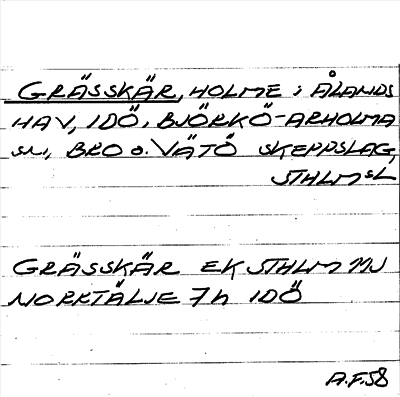 GRÄSSKÄR, HOLME i ÅLANDS
HAV, IDÖ, BJÖRKÖ-ARHOLMA
sn, BRO o. VÄTÖ SKEPPSLAG,
STHLMSL
GRÄSSKÄR EK STHLM NJ
NORRTÄLJE 7h IDÖ
A.F.58